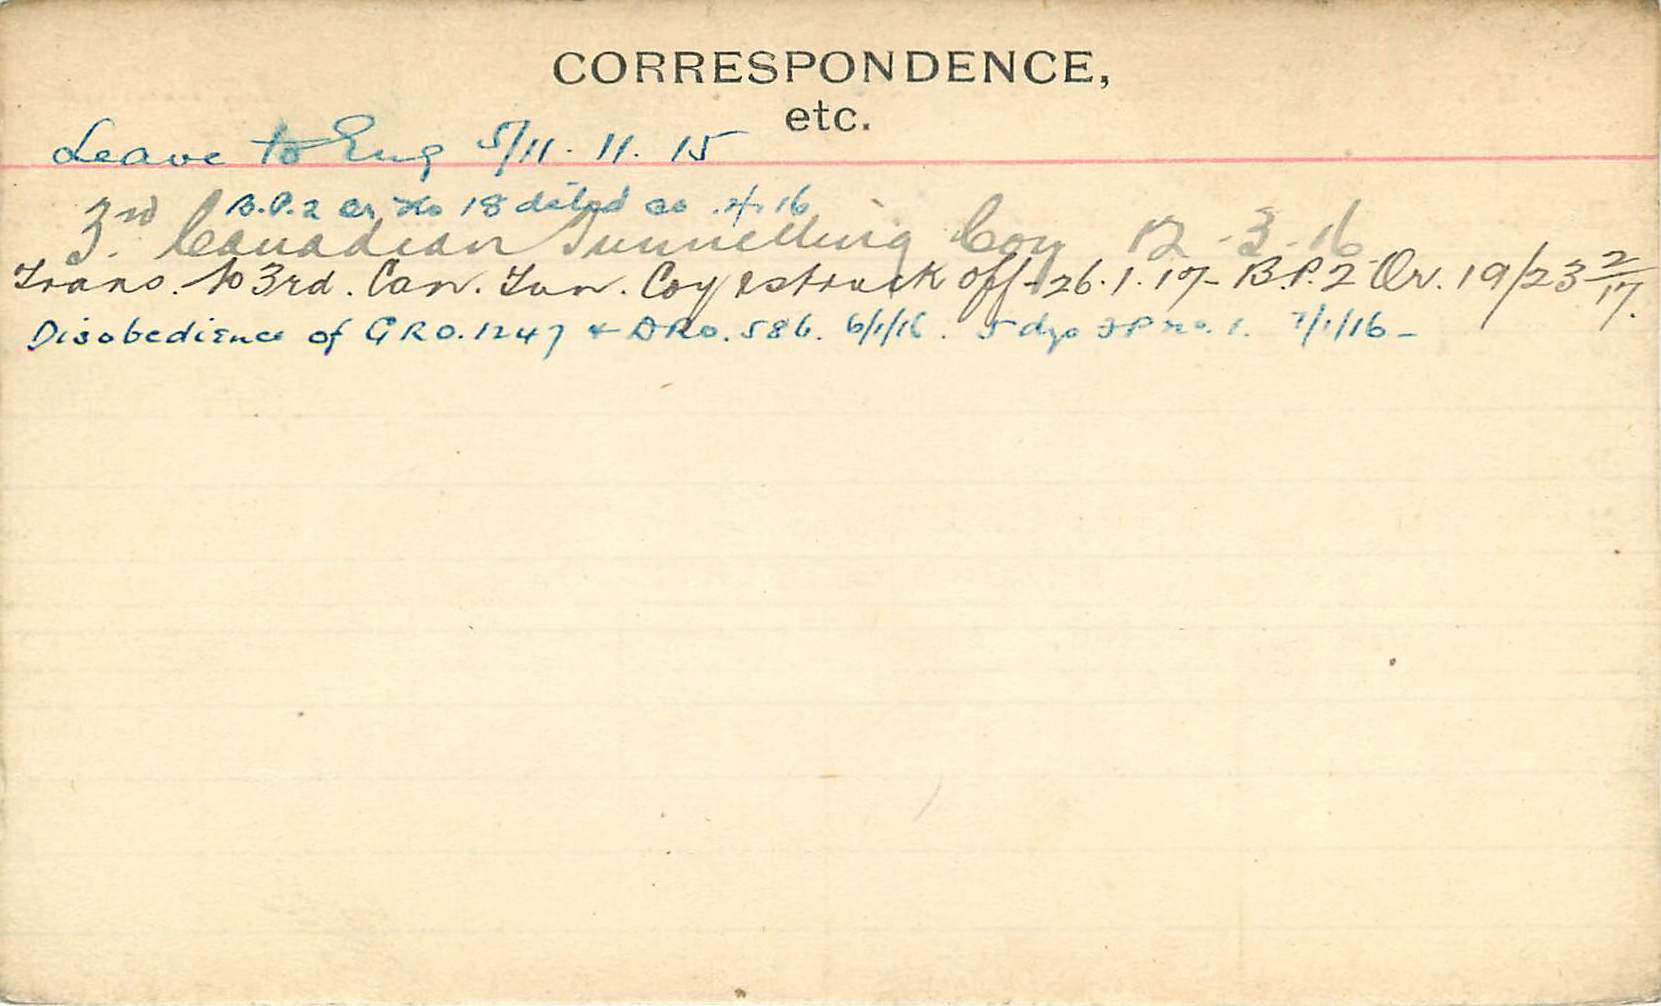 CORRESPONDENCE,
etc.
Leave to Eng 5/11. 11. 15
B.P.2 Or No 18 dated 20 .4.16
3rd Canadian Tunnelling Coy 12-3-16
Trans. to 3rd. Can. Tun. Coy & struck off - 26.1.17- B.P.2 Or. 19/23 2/17.
Disobedience of GRO.1247 & DRO.586. 6/1/16. 5 dys FP no. 1. 7/1/16-